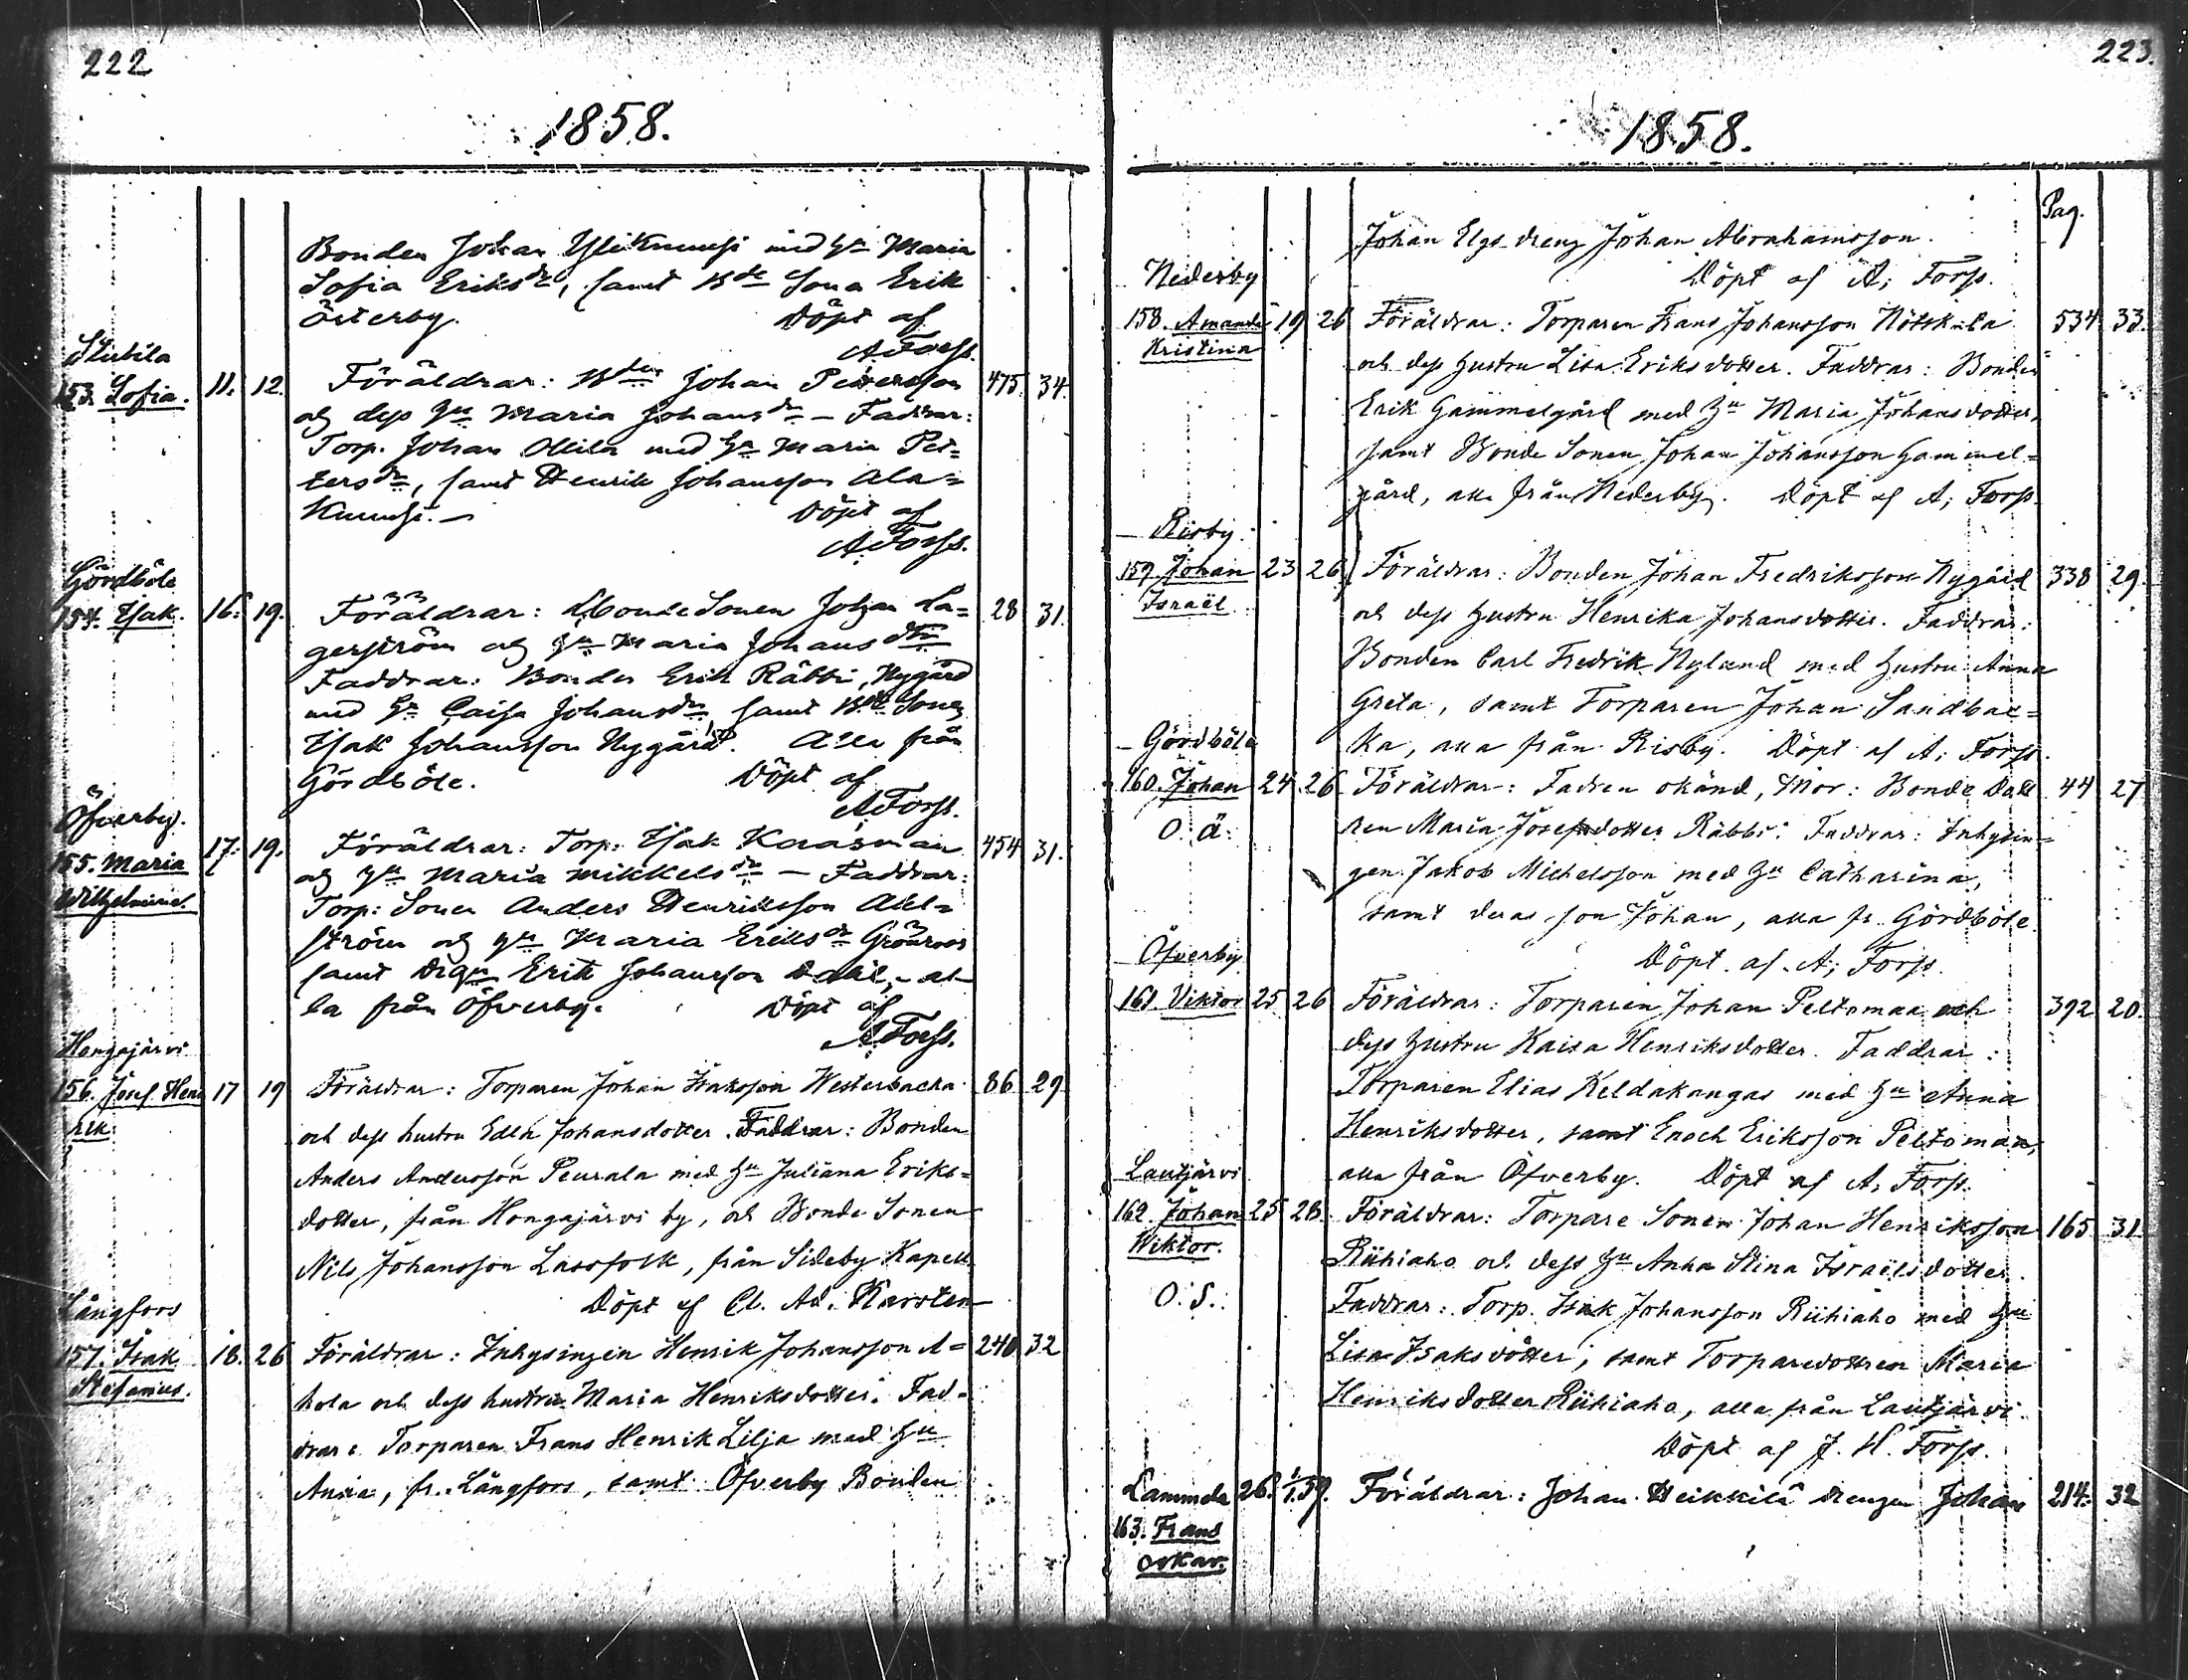 222
1858.
Bonden Johan Yliknuusi med hu Maria
Sofia Eriksdr, samt Bde Sona Erik
Österby. Döpt af
A Forss.
153. Sofia. 11. 12. Föräldrar: Bden Johan Pettersson 475 34.
og dess hu Maria Johansdr – Faddrar:
Torp. Johan Ollila med hu Maria Pet=
tersdr, samt Henrik Johansson Ala=
Knuusi. – Döpt af
A Forss.
Gördböle
154. Isak. 16. 19. Föräldrar: Bonde Sonen Johan La= 28 31.
gerström og hu Maria Johansdtr
Faddrar: Bonden Erik Räbbi, Nygård
med hu Caisa Johansdr, samt Bde Sonen
Isak Johansson Nygård. Alla från
Gördböle. Döpt af
A Forss.
Öfverby.
155. Maria 17. 19. Föräldrar: Torp. Isak Kaasman 454 31.
Wilhelmina. og hu Maria Mikkelsdr – Faddrar:
Torp: Sonen Anders Henriksson Ahl=
ström og hu Maria Eriksdr Grönroos
samt Drgn Erik Johansson Dahl, – al-
la från Öfverby. Döpt af
A Forss.
Hongajärvi
156. Josef Hen 17 19 Föräldrar: Torparen Johan Isaksson Westerbacka 86 29
rik. och dess hustru Edla Johansdotter. Faddrar: Bonden
Anders Andersson Peurala med hu Juliana Eriks=
dotter, från Hongajärvi by, och Bonde Sonen
Nils Johansson Lassfolk, från Sideby Kapell.
Döpt af Cl. Ad. Karsten
Långfors
157. Isak 18. 26 Föräldrar: Inhysingen Henrik Johansson A= 240 32
Stefanus. hola och dess hustru Maria Henriksdotter. Fad=
drar: Torparen Frans Henrik Lilja med hu
Anna, fr. Långfors, samt Öfverby Bonden
223.
1858.
Pag.
Johan Elgs dreng Johan Abrahamsson.
Nederby Döpt af A; Forss.
158. Amanda 19 26 Föräldrar: Torparen Frans Johansson 534 33.
Kristina och dess hustru Lisa Eriksdotter. Faddrar: Bonden
Erik Gammelgård med hu Maria Johansdotter,
samt Bonde Sonen Johan Johansson Gammel=
gård, alla från Nederby. Döpt af A; Forss.
Risby.
159. Johan 23 26 Föräldrar: Bonden Johan Fredriksson Nygård 338 29.
Israël och dess hustru Henrika Johansdotter. Faddrar:
Bonden Carl Fredrik Nylund med hustru Anna
Greta, samt Torparen Johan Sandbac=
Gördböle ka, alla från Risby. Döpt af A; Forss.
160. Johan 24 26 Föräldrar: Fadren okänd, Mor: Bonde Dott 44 27
O. ä: ren Maria Josefsdotter Räbbi. Faddrar: Inhysin=
gen Jakob Michelsson med hu Catharina,
samt deras son Johan, alla fr. Gördböle.
Öfverby Döpt af A; Forss.
161 Viktor 25 26 Föräldrar: Torparen Johan Peltomaa och 392 20.
dess hustru Kaisa Henriksdotter. Faddrar:
Torparen Elias Keldakangas med hu Anna
Henriksdotter, samt Enoch Eriksson Peltomaa,
Lautjärvi alla från Öfverby. Döpt af A; Forss.
162 Johan 25 28. Föräldrar: Torpare Sonen Johan Henriksson 165 31
Wiktor. Riihiaho och dess hu Anna Stina Israëlsdotter.
O. S. Faddrar: Torp. Isak Johansson Riihiaho med hu
Lisa Isaksdotter, samt Torparedottren Maria
Henriksdotter Riihiaho, alla från Lautjärvi.
Döpt af J. H. Forss.
Lammela 26. 1/1.59. Föräldrar: Johan Heikkilä drengen Johan 214. 32
163. Frans
Oskar.